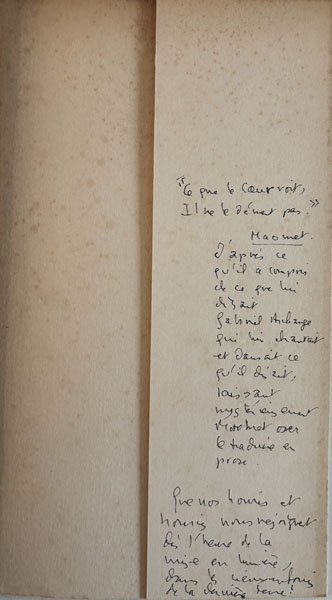 "Ce que le cœur voit,
Il ne le dément pas."
Maomet.
d'après ce
qu'il a compris
de ce que lui
disait
Gabriel Archange
qui lui chantait
et dansait ce
qu'il disait,
laissant
mystérieusement
oser
le traduire en
prose.
Que nos houris et
houris nous rejoignent
dès l'heure de la
mise en lumière,
dans le
de la dernière terre!